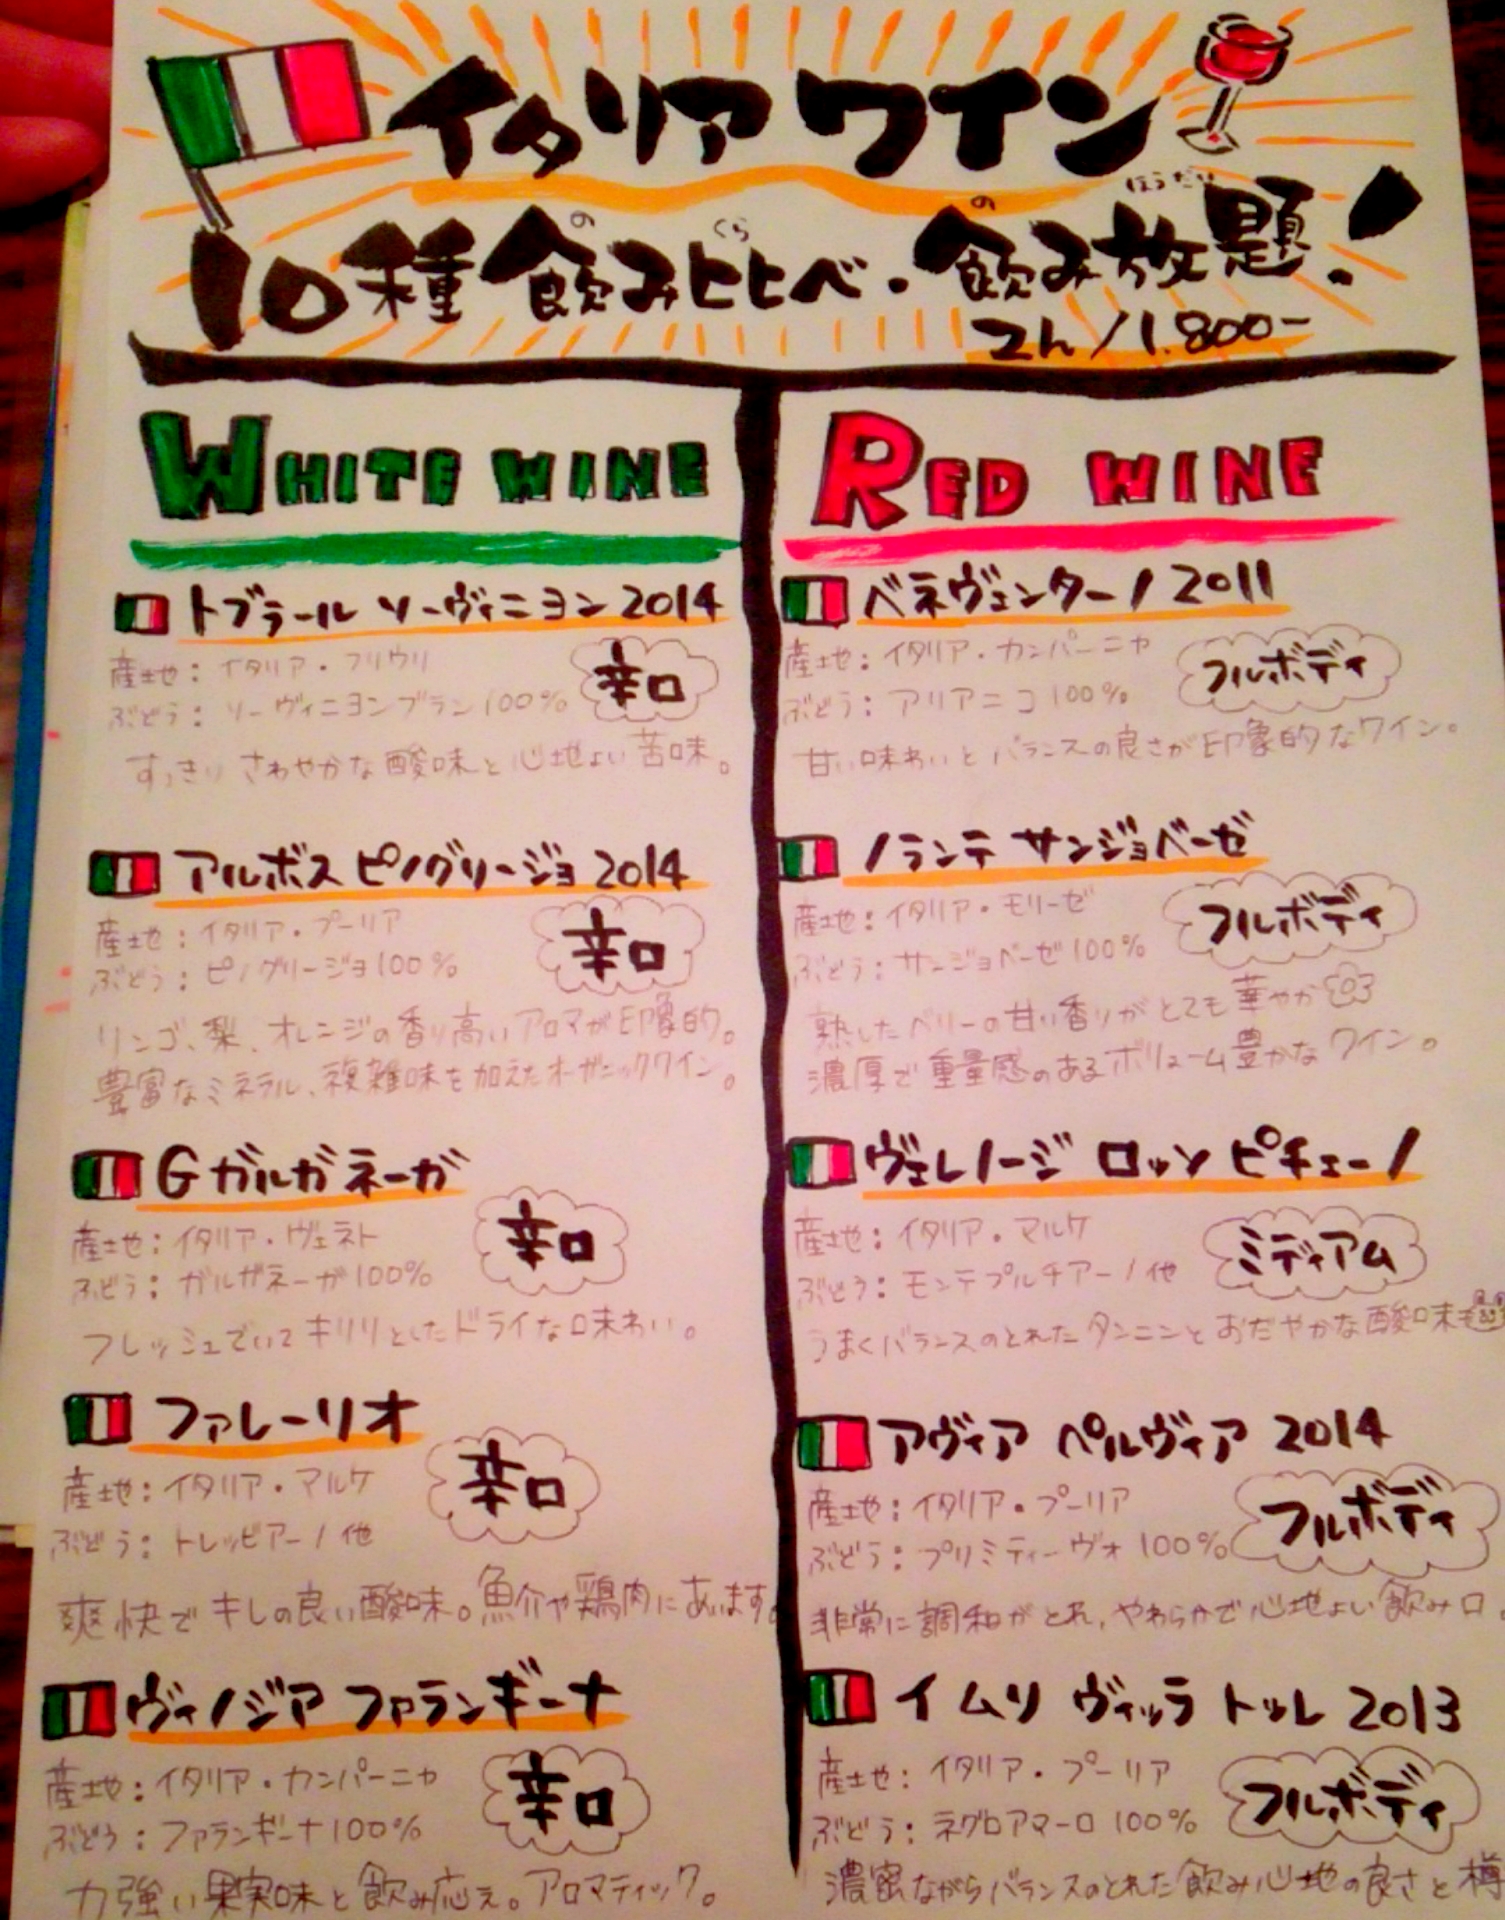 イタリアワイン
10種飲みくらべ・飲み放題!
WHITE WINE
トブラール ソーヴィニヨン 2014
産地:イタリア・フリウリ
辛口
ぶどう:ソーヴィニヨンブラン100%
すっきり さわやかな酸味と心地よい苦味。
アルボス ピノグリージョ 2014
産地:イタリア・プーリア
辛口
ぶどう:ピノグリージョ100%
リンゴ、梨、オレンジの香り高いアロマが印象的。
豊富なミネラル、複雑味を加えたオーガニックワイン。
G ガルガネーガ
産地:イタリア・ヴェネト
辛口
ぶどう:ガルガネーガ100%
フレッシュでいてキリリとしたドライな味わい。
ファレーリオ
産地:イタリア・マルケ
辛口
ぶどう:トレッビアーノ他
爽快でキレの良い酸味。魚介や鶏肉にあいます。
ヴィノジア ファランギーナ
産地:イタリア・カンパーニャ
辛口
ぶどう:ファランギーナ100%
力強い果実味と飲み応え。アロマティック。
RED WINE
ベネヴェンターノ 2011
産地:イタリア・カンパーニャ
フルボディ
ぶどう:アリアニコ100%
甘い味わいとバランスの良さが印象的なワイン。
ノランテ サンジョベーゼ
産地:イタリア・モリーゼ
フルボディ
ぶどう:サンジョベーゼ100%
熟したベリーの甘い香りがとても華やか
濃厚で重量感のあるボリューム豊かなワイン。
ヴェレノージ ロッソ ピチェーノ
産地:イタリア・マルケ
ミディアム
ぶどう:モンテプルチアーノ他
うまくバランスのとれたタンニンとおだやかな酸味も
アヴィア ペルヴィア 2014
産地:イタリア・プーリア
フルボディ
ぶどう:プリミティーヴォ100%
非常に調和がとれ、やわらかで心地よい飲み口。
イムリ ヴィッラ トッレ 2013
産地:イタリア・プーリア
フルボディ
ぶどう:ネグロアマーロ100%
濃密ながらバランスのとれた飲み心地の良さと樽